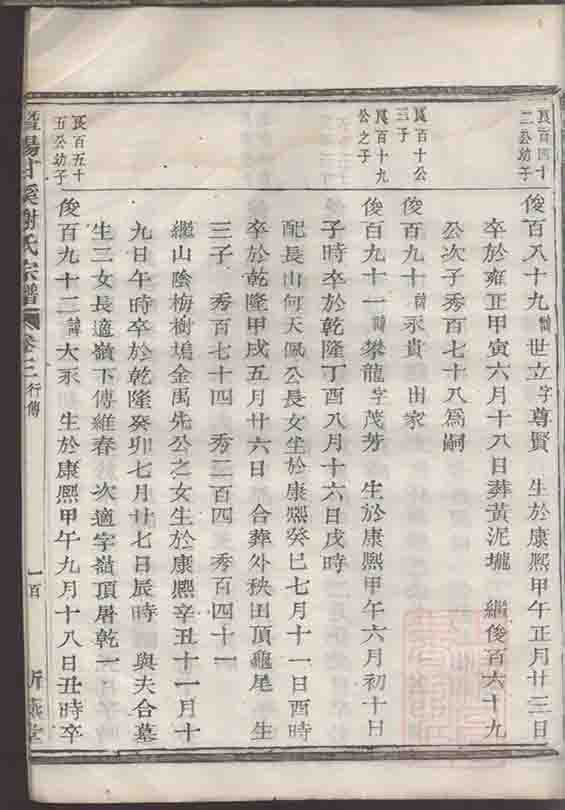 良百四十
二公幼子
俊百八十九諱世立字尊賢 生於康熙甲午正月廿三日
卒於雍正甲寅六月十八日葬黃泥壠 繼俊百六十九
公次子秀百七十八爲嗣
良百十公
三子
俊百九十諱永貴 出家
良百十九
公之子
俊百九十一諱攀龍字茂芳 生於康熙甲午六月初十日
子時卒於乾隆丁酉八月十六日戌時
配長山何天佩公長女生於康熙癸巳七月十一日酉時
卒於乾隆甲戌五月廿六日 合葬外秧田頂龜尾 生
三子 秀百七十四 秀二百四 秀百四十一
繼山陰梅樹塢金禹先公之女生於康熙辛丑十一月十
九日午時卒於乾隆癸卯七月廿七日辰時 與夫合墓
生二女長適嶺下傅維春 次適字嶺頂屠乾一
良百五十
五公幼子
俊百九十二諱大永 生於康熙甲午九月十八日丑時卒
暨陽甘溪謝氏宗譜 卷之二 行傳 一百